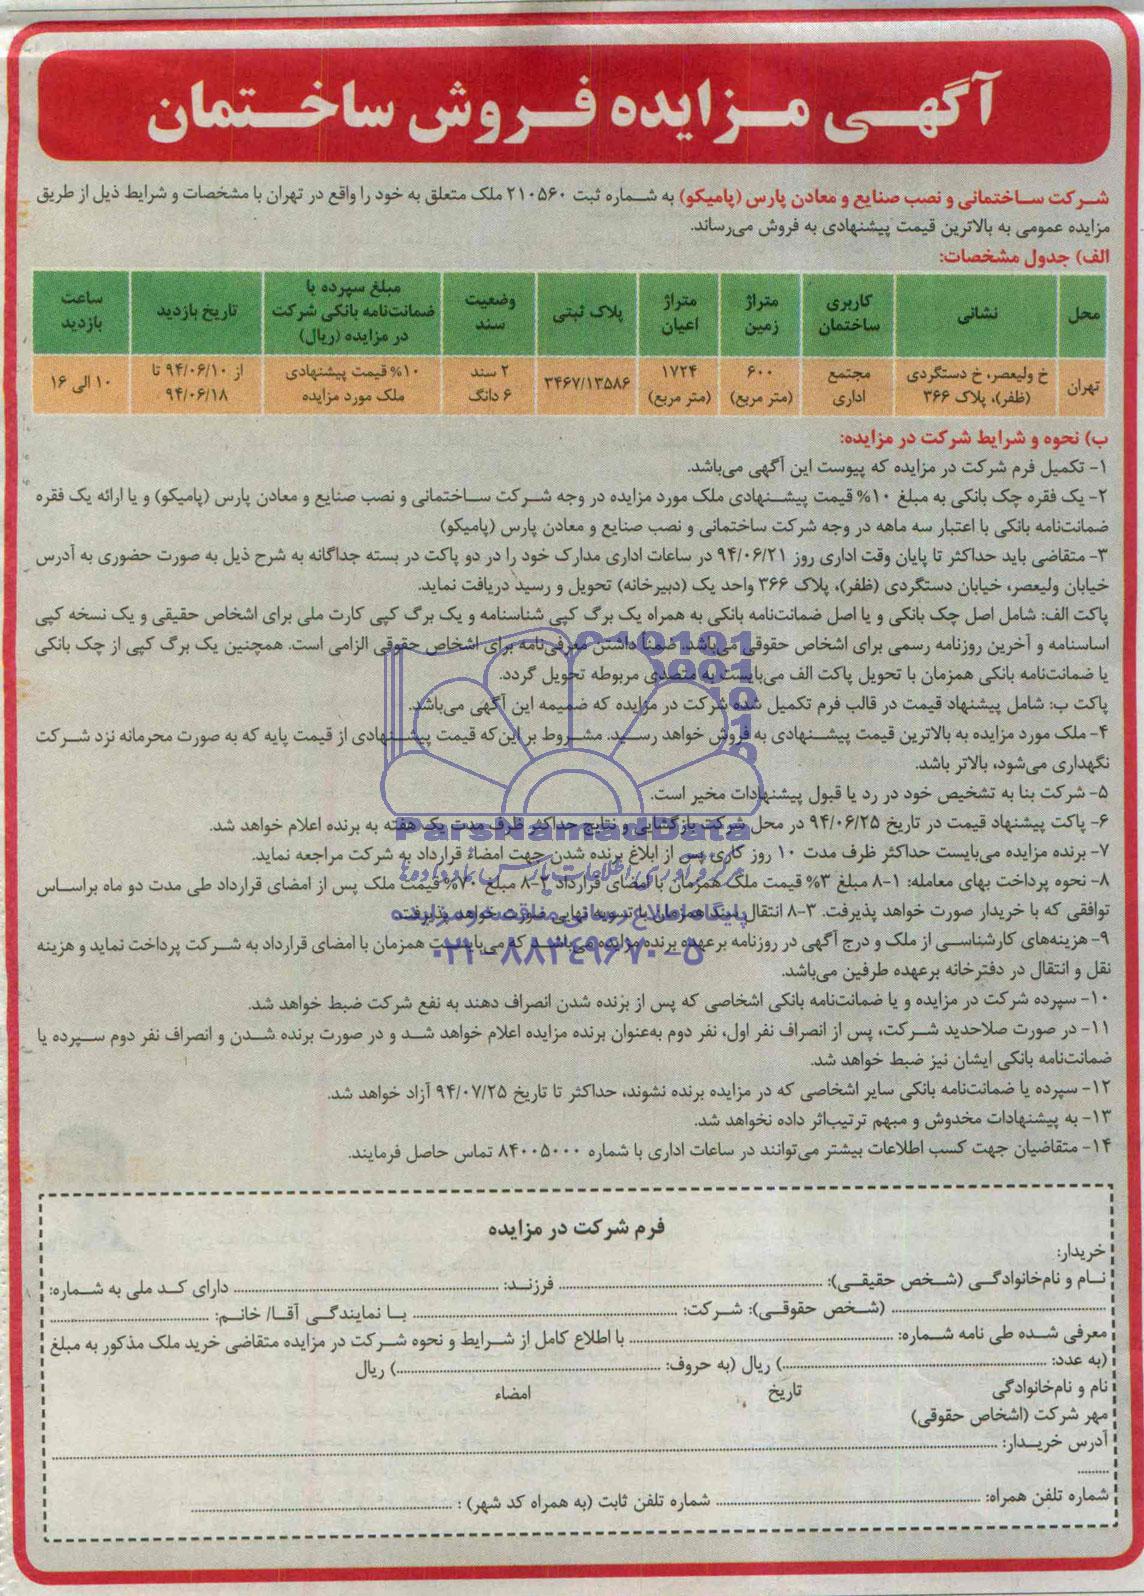 آگهی مزایده فروش ساختمان
شرکت ساختمانی و نصب صنایع و معادن پارس (پامیکو) به شماره ثبت ۲۱۰۵۶۰ ملک متعلق به خود را واقع در تهران با مشخصات و شرایط ذیل از طریق
مزایده عمومی به بالاترین قیمت پیشنهادی به فروش می‌رساند.
الف) جدول مشخصات:
محل | نشانی | کاربری ساختمان | متراژ زمین | متراژ اعیان | پلاک ثبتی | وضعیت سند | مبلغ سپرده یا ضمانت‌نامه بانکی شرکت در مزایده (ریال) | تاریخ بازدید | ساعت بازدید
تهران | خ ولیعصر، خ دستگردی (ظفر)، پلاک ۳۶۶ | مجتمع اداری | ۶۰۰ (متر مربع) | ۱۷۲۴ (متر مربع) | ۳۴۶۷/۱۳۵۸۶ | ۲ سند ۶ دانگ | ۱۰% قیمت پیشنهادی ملک مورد مزایده | از ۹۴/۰۶/۱۰ تا ۹۴/۰۶/۱۸ | ۱۰ الی ۱۶
ب) نحوه و شرایط شرکت در مزایده:
۱- تکمیل فرم شرکت در مزایده که پیوست این آگهی می‌باشد.
۲- یک فقره چک بانکی به مبلغ ۱۰% قیمت پیشنهادی ملک مورد مزایده در وجه شرکت ساختمانی و نصب صنایع و معادن پارس (پامیکو) و یا ارائه یک فقره
ضمانت‌نامه بانکی با اعتبار سه ماهه در وجه شرکت ساختمانی و نصب صنایع و معادن پارس (پامیکو)
۳- متقاضی باید حداکثر تا پایان وقت اداری روز ۹۴/۰۶/۲۱ در ساعات اداری مدارک خود را در دو پاکت در بسته جداگانه به شرح ذیل به صورت حضوری به آدرس
خیابان ولیعصر، خیابان دستگردی (ظفر)، پلاک ۳۶۶ واحد یک (دبیرخانه) تحویل و رسید دریافت نماید.
پاکت الف: شامل اصل چک بانکی و یا اصل ضمانت‌نامه بانکی به همراه یک برگ کپی شناسنامه و یک برگ کپی کارت ملی برای اشخاص حقیقی و یک نسخه کپی
اساسنامه و آخرین روزنامه رسمی برای اشخاص حقوقی می‌باشد. ضمناً داشتن معرفی‌نامه برای اشخاص حقوقی الزامی است. همچنین یک برگ کپی از چک بانکی
یا ضمانت‌نامه بانکی همزمان با تحویل پاکت الف می‌بایست به متصدی مربوطه تحویل گردد.
پاکت ب: شامل پیشنهاد قیمت در قالب فرم تکمیل شده شرکت در مزایده که ضمیمه این آگهی می‌باشد.
۴- ملک مورد مزایده به بالاترین قیمت پیشنهادی به فروش خواهد رسید. مشروط بر این‌که قیمت پیشنهادی از قیمت پایه که به صورت محرمانه نزد شرکت
نگهداری می‌شود، بالاتر باشد.
۵- شرکت بنا به تشخیص خود در رد یا قبول پیشنهادات مخیر است.
۶- پاکت پیشنهاد قیمت در تاریخ ۹۴/۰۶/۲۵ در محل شرکت بازگشایی و نتایج حداکثر ظرف مدت یک هفته به برنده اعلام خواهد شد.
۷- برنده مزایده می‌بایست حداکثر ظرف مدت ۱۰ روز کاری پس از ابلاغ برنده شدن جهت امضاء قرارداد به شرکت مراجعه نماید.
۸- نحوه پرداخت بهای معامله: ۱-۸ مبلغ ۳% قیمت ملک همزمان با امضای قرارداد ۲-۸ مبلغ ۷۰% قیمت ملک پس از امضای قرارداد طی مدت دو ماه براساس
توافقی که با خریدار صورت خواهد پذیرفت. ۳-۸ انتقال سند همزمان با تسویه نهایی صورت خواهد پذیرفت.
۹- هزینه‌های کارشناسی از ملک و درج آگهی در روزنامه برعهده برنده مزایده می‌باشد که می‌بایست همزمان با امضای قرارداد به شرکت پرداخت نماید و هزینه
نقل و انتقال در دفترخانه برعهده طرفین می‌باشد.
۱۰- سپرده شرکت در مزایده و یا ضمانت‌نامه بانکی اشخاصی که پس از برنده شدن انصراف دهند به نفع شرکت ضبط خواهد شد.
۱۱- در صورت صلاحدید شرکت، پس از انصراف نفر اول، نفر دوم به‌عنوان برنده مزایده اعلام خواهد شد و در صورت برنده شدن و انصراف نفر دوم سپرده یا
ضمانت‌نامه بانکی ایشان نیز ضبط خواهد شد.
۱۲- سپرده یا ضمانت‌نامه بانکی سایر اشخاصی که در مزایده برنده نشوند، حداکثر تا تاریخ ۹۴/۰۷/۲۵ آزاد خواهد شد.
۱۳- به پیشنهادات مخدوش و مبهم ترتیب‌اثر داده نخواهد شد.
۱۴- متقاضیان جهت کسب اطلاعات بیشتر می‌توانند در ساعات اداری با شماره ۸۴۰۰۵۰۰۰ تماس حاصل فرمایند.
ParsNamadData
پایگاه اطلاع رسانی مناقصه و مزایده
۰۲۱-۸۸۳۴۹۶۷۰-۵
فرم شرکت در مزایده
خریدار:
نام و نام‌خانوادگی (شخص حقیقی): ........ فرزند: ........ دارای کد ملی به شماره:
........ (شخص حقوقی): شرکت: ........ با نمایندگی آقا/ خانم: ........
معرفی شده طی نامه شماره: ........ با اطلاع کامل از شرایط و نحوه شرکت در مزایده متقاضی خرید ملک مذکور به مبلغ
(به عدد: ........) ریال (به حروف: ........) ریال
نام و نام‌خانوادگی تاریخ امضاء
مهر شرکت (اشخاص حقوقی)
آدرس خریدار: ........
........
شماره تلفن همراه: ........ شماره تلفن ثابت (به همراه کد شهر) : ........